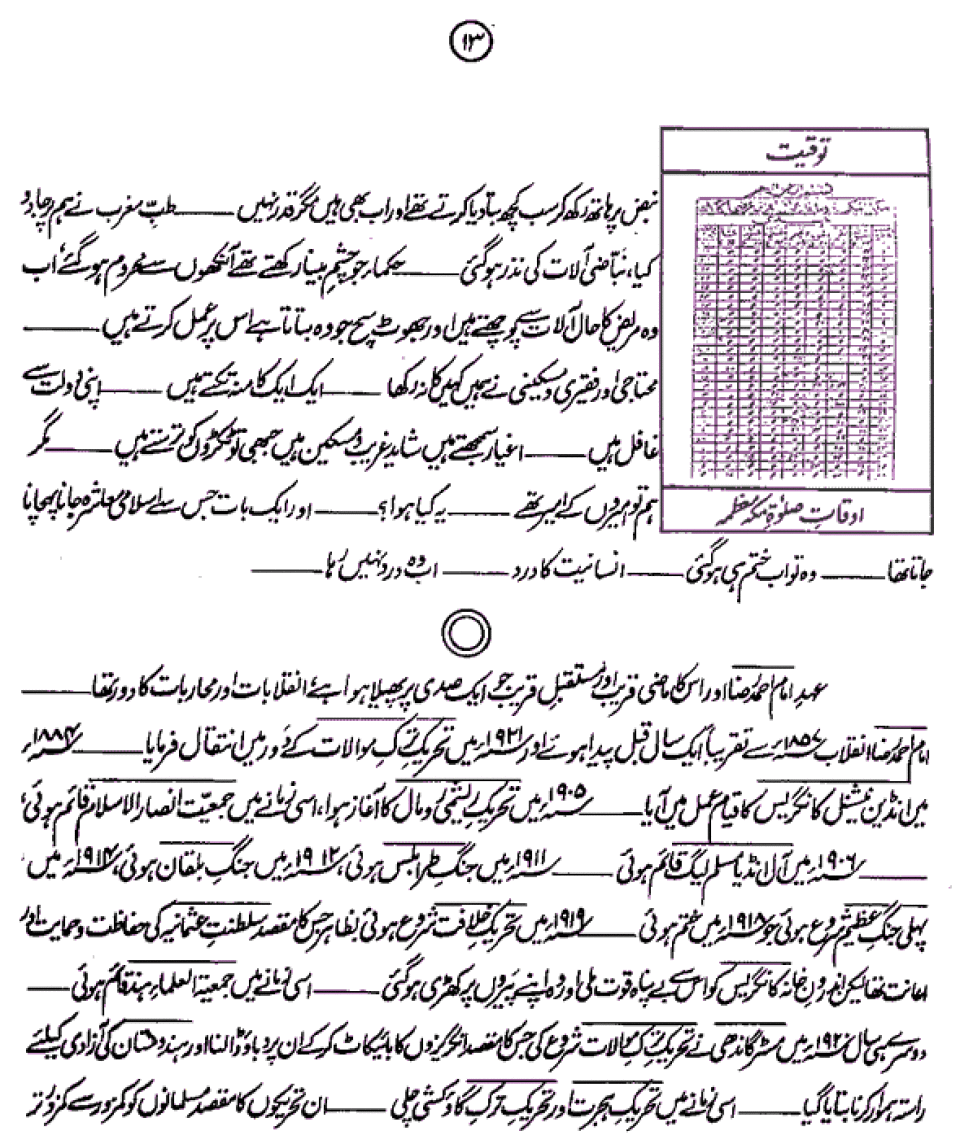 ۱۳
توقیت
اوقاتِ صلوٰۃ مکہ معظمہ
نبض پر ہاتھ رکھ کر سب کچھ بتا دیا کرتے تھے اور اب بھی ہیں مگر قدر نہیں ــــــ طبِّ مغرب نے ہم پر جادو
کیا، نباّضی آلات کی نذر ہوگئی ــــــ حکماء جو چشمِ بینا رکھتے تھے آنکھوں سے محروم ہوگئے اب
وہ مریض کا حال آلات سے پوچھتے ہیں اور جھوٹ سچ جو وہ بتاتا ہے اس پر عمل کرتے ہیں ــــــ
محتاجی اور فقیری و مسکینی نے ہمیں کہیں کا نہ رکھا ــــــ ایک ایک کا منہ تکتے ہیں ــــــ اپنی دولت سے
غافل ہیں ــــــ اغیار سمجھتے ہیں شاید غریب و مسکین ہیں جبھی تو ٹکڑوں کو ترستے ہیں ــــــ مگر
ہم تو امیروں کے امیر تھے ــــــ یہ کیا ہوا؟ ــــــ اور ایک بات جس سے اسلامی معاشرہ جانا پہچانا
جاتا تھا ــــــ وہ تو اب ختم ہی ہوگئی ــــــ انسانیت کا درد ــــــ اب وہ درد نہیں رہا ــــــ
عہدِ امام احمد رضا اور اس کا ماضی قریب اور مستقبل قریب جو ایک صدی پر پھیلا ہوا ہے انقلابات اور محاربات کا دور تھا ــــــ
امام احمد رضا انقلاب ۱۸۵۷ء سے تقریباً ایک سال قبل پیدا ہوئے اور ۱۹۲۱ء میں تحریکِ ترکِ موالات کے دور میں انتقال فرمایا ــــــ ۱۸۸۴ء
میں انڈین نیشنل کانگریس کا قیام عمل میں آیا ــــــ ۱۹۰۵ء میں تحریکِ ریشمی رومال کا آغاز ہوا، اسی زمانے میں جمعیّت انصار الاسلام قائم ہوئی
ــــــ ۱۹۰۶ء میں آل انڈیا مسلم لیگ قائم ہوئی ــــــ ۱۹۱۱ء میں جنگِ طرابلس ہوئی، ۱۹۱۲ء میں جنگِ بلقان ہوئی، ۱۹۱۴ء میں
پہلی جنگِ عظیم شروع ہوئی جو ۱۹۱۸ء میں ختم ہوئی ــــــ ۱۹۱۹ء میں تحریکِ خلافت شروع ہوئی بظاہر جس کا مقصد سلطنتِ عثمانیہ کی حفاظت و حمایت اور
اعانت تھا لیکن اندرونِ خانہ کانگریس کو اس سے بے پناہ قوت ملی اور وہ اپنے پیروں پر کھڑی ہوگئی ــــــ اسی زمانے میں جمعیۃ العلماءِ ہند قائم ہوئی ــــــ
دوسرے ہی سال ۱۹۲۰ء میں مسٹر گاندھی نے تحریکِ ترکِ موالات شروع کی جس کا مقصد انگریزوں کا بائیکاٹ کر کے ان پر دباؤ ڈالنا اور ہندوستان کی آزادی کیلئے
راستہ ہموار کرنا بتایا گیا ــــــ اسی زمانے میں تحریکِ ہجرت اور تحریکِ ترکِ گاؤکشی چلی ــــــ ان تحریکوں کا مقصد مسلمانوں کو کمزور سے کمزور تر